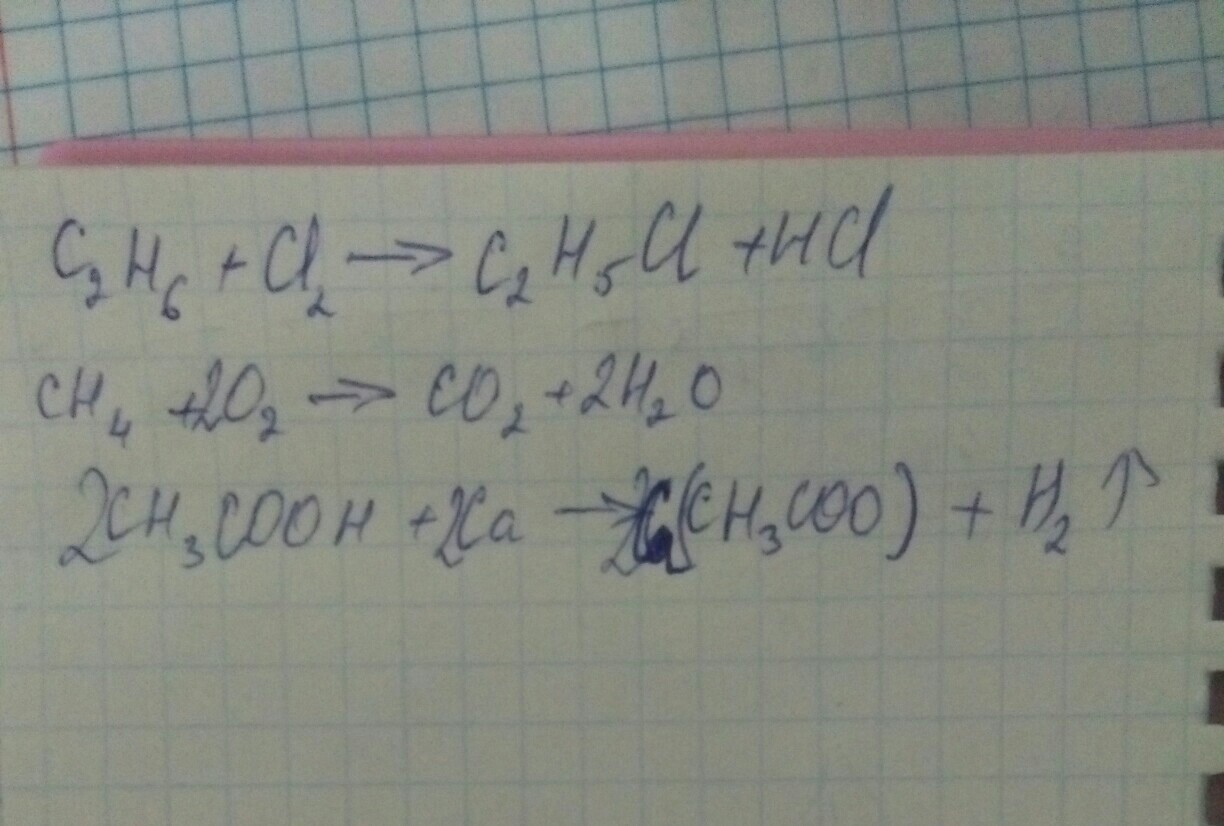 C₂H₆ + Cl₂ → C₂H₅Cl + HCl
CH₄ + 2O₂ → CO₂ + 2H₂O
2CH₃COOH + 2Ca → 2Ca(CH₃COO) + H₂↑